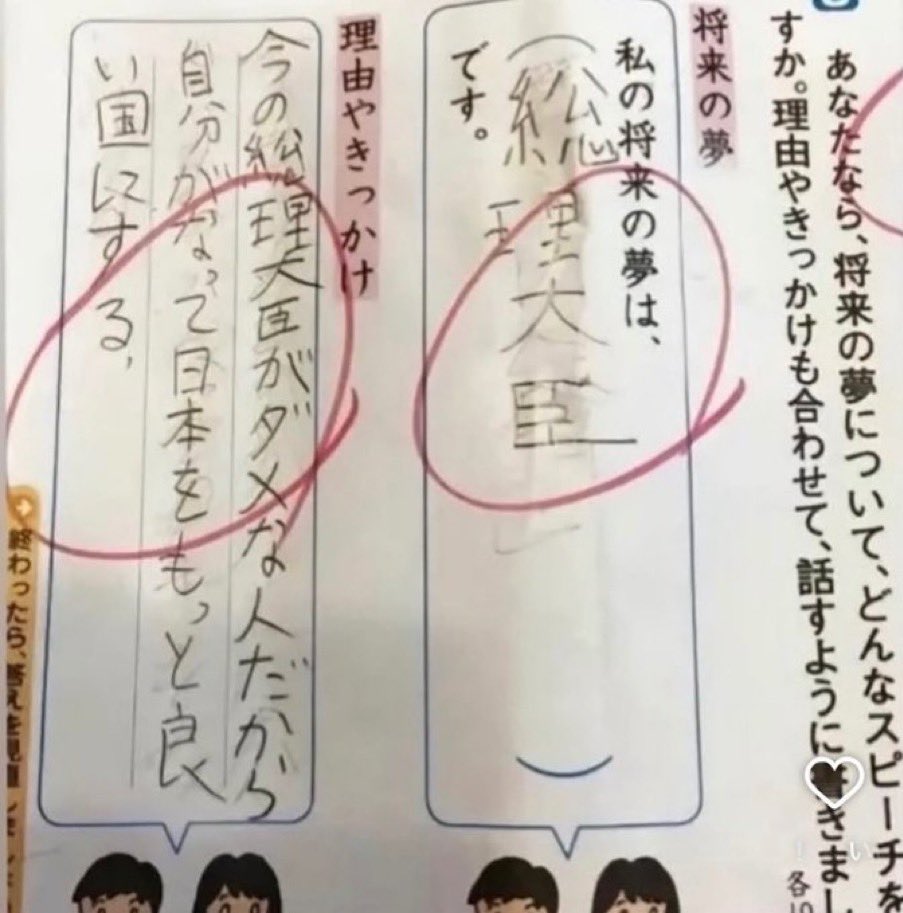 あなたなら、将来の夢について、どんなスピーチを
すか。理由やきっかけも合わせて、話すように書きまし
各10
将来の夢
私の将来の夢は、
(総理大臣)
です。
理由やきっかけ
今の総理大臣がダメな人だから
自分がなって日本をもっと良
い国にする、
終わったら、答えを見直しま